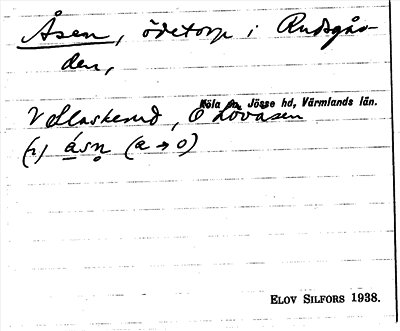 Åsen, ödetorp i Rudsgår-
den,
Köla sn, Jösse hd, Värmlands län.
V Slaskerud, O Lövåsen
(r) åsn (a → o)
ELOV SILFORS 1938.